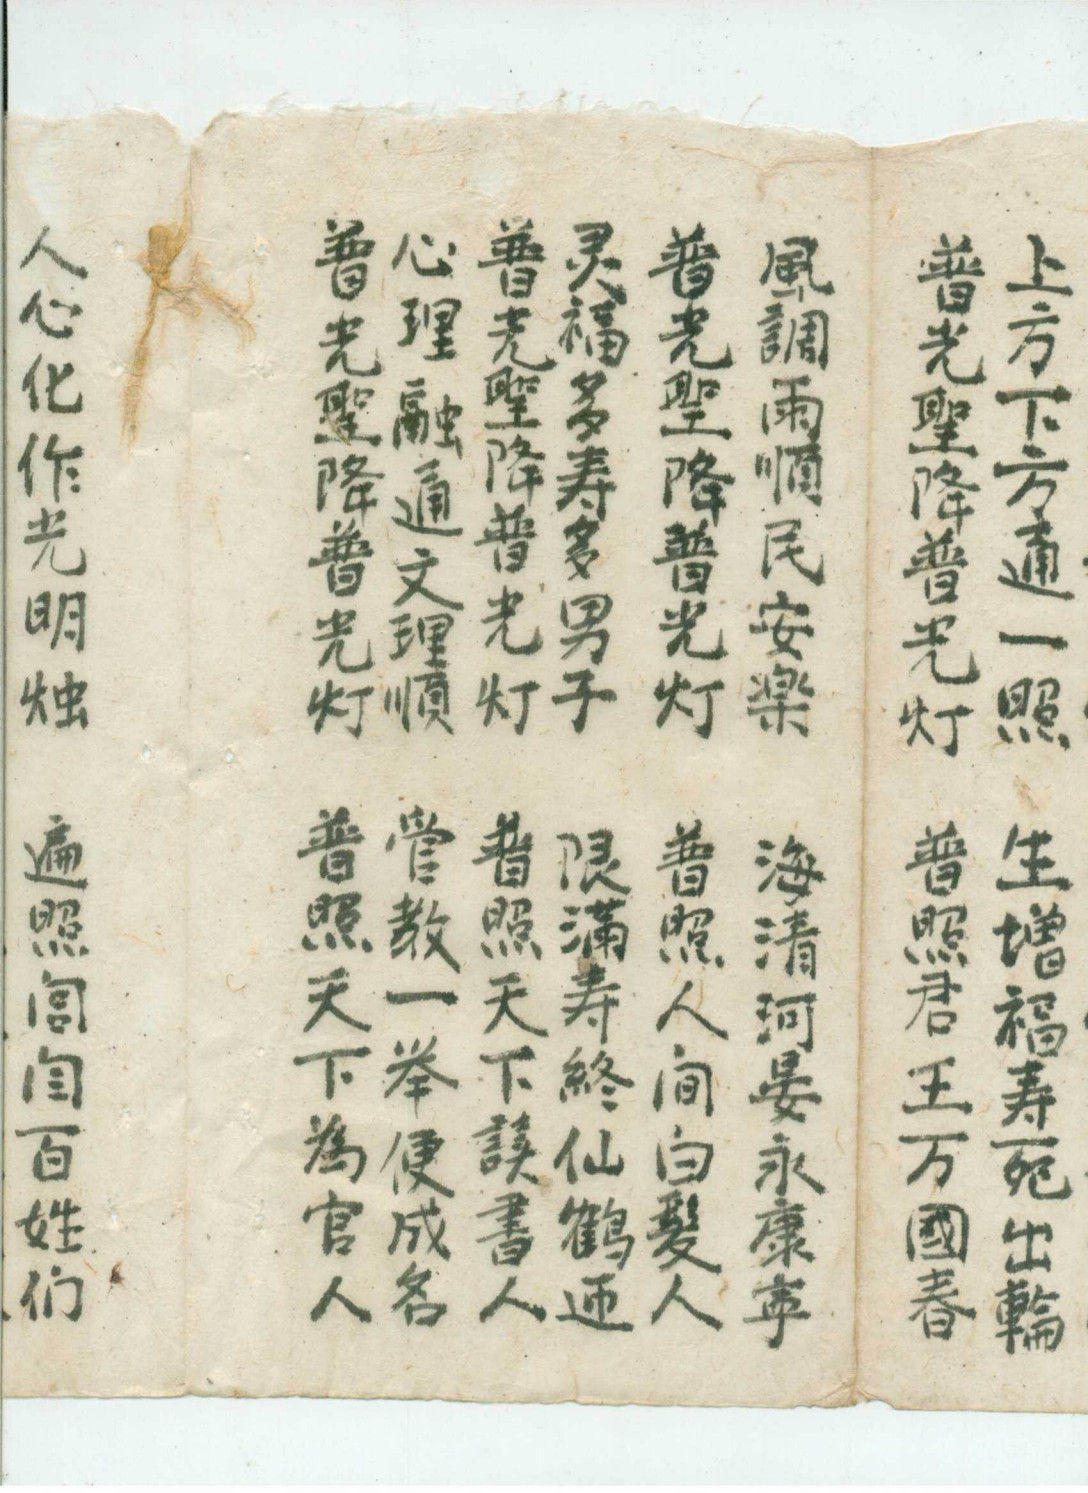 上方下方通一照 生增福寿死出輪
普光聖降普光灯 普照君王万國春
風調雨順民安楽 海清河晏永康寧
普光聖降普光灯 普照人间白髮人
灵福多寿多男子 限滿寿終仙鶴迎
普光聖降普光灯 普照天下読書人
心理融通文理順 管教一举便成名
普光聖降普光灯 普照天下為官人
人心化作光明烛 遍照闾闫百姓们